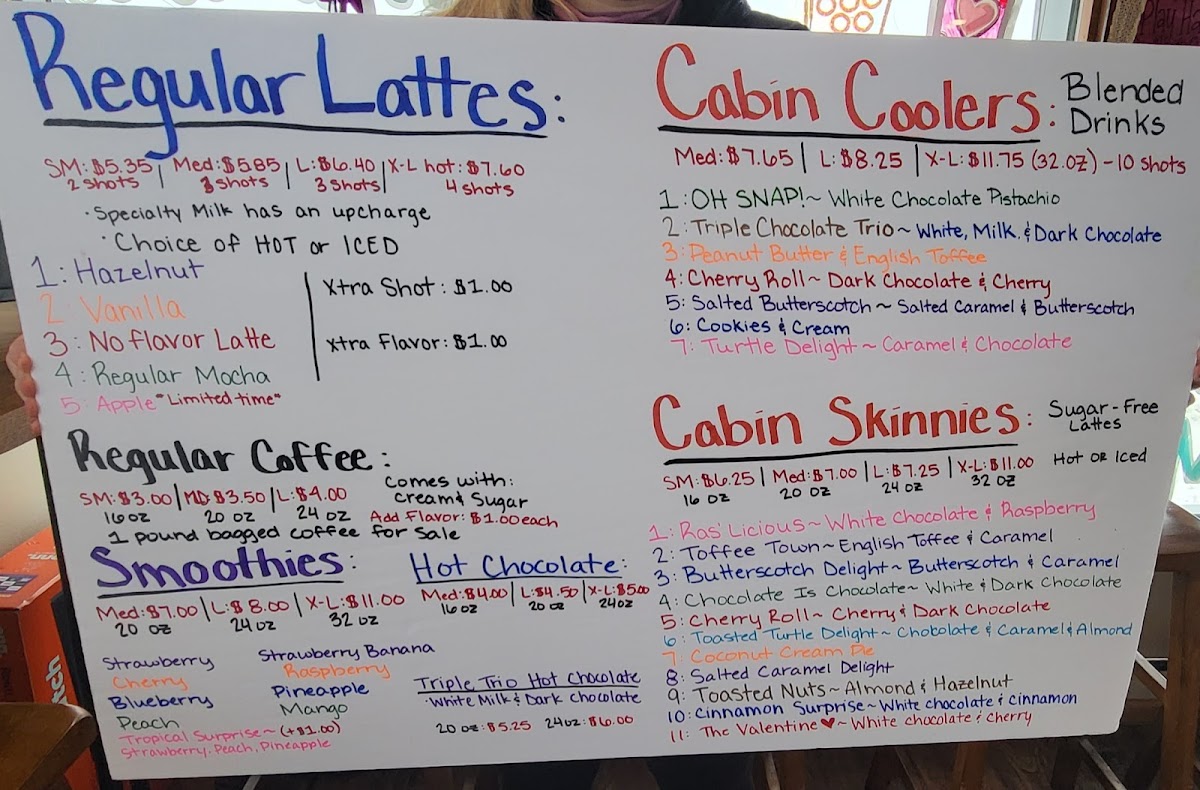 Regular Lattes:
SM: $5.35 | Med: $5.85 | L: $6.40 | X-L hot: $7.60
2 shots 3 shots 3 shots 4 shots
· Specialty Milk has an upcharge
· Choice of HOT or ICED
1: Hazelnut
2: Vanilla
3: No Flavor Latte
4: Regular Mocha
5: Apple *Limited time*
Xtra Shot: $1.00
Xtra Flavor: $1.00
Regular Coffee:
SM: $3.00 | MD: $3.50 | L: $4.00
16 oz 20 oz 24 oz
Comes with:
cream & Sugar
Add Flavor: $1.00 each
1 pound bagged coffee for sale
Smoothies:
Med: $7.00 | L: $8.00 | X-L: $11.00
20 oz 24 oz 32 oz
Strawberry
Cherry
Blueberry
Peach
Strawberry Banana
Raspberry
Pineapple
Mango
Tropical Surprise~ (+$1.00)
Strawberry, Peach, Pineapple
Hot Chocolate:
Med: $4.00 | L: $4.50 | X-L: $5.00
16 oz 20 oz 24 oz
Triple Trio Hot Chocolate
White Milk & Dark Chocolate
20 oz: $5.25 24 oz: $6.00
Cabin Coolers: Blended
Drinks
Med: $7.65 | L: $8.25 | X-L: $11.75 (32.oz) - 10 shots
1: OH SNAP!~ White Chocolate Pistachio
2: Triple Chocolate Trio~ White, Milk. & Dark Chocolate
3: Peanut Butter & English Toffee
4: Cherry Roll~ Dark Chocolate & Cherry
5: Salted Butterscotch~ Salted Caramel & Butterscotch
6: Cookies & Cream
7: Turtle Delight~ Caramel & Chocolate
Cabin Skinnies: Sugar-Free
Lattes
Hot or Iced
SM: $6.25 | Med: $7.00 | L: $7.25 | X-L: $11.00
16 oz 20 oz 24 oz 32 oz
1: Ras'Licious~ White Chocolate & Raspberry
2: Toffee Town~ English Toffee & Caramel
3: Butterscotch Delight~ Butterscotch & Caramel
4: Chocolate Is Chocolate~ White & Dark Chocolate
5: Cherry Roll~ Cherry & Dark Chocolate
6: Toasted Turtle Delight~ Chobolate & Caramel & Almond
7: Coconut Cream Pie
8: Salted Caramel Delight
9: Toasted Nuts~ Almond & Hazelnut
10: Cinnamon Surprise~ White chocolate & cinnamon
11: The Valentine ♥~ White chocolate & cherry